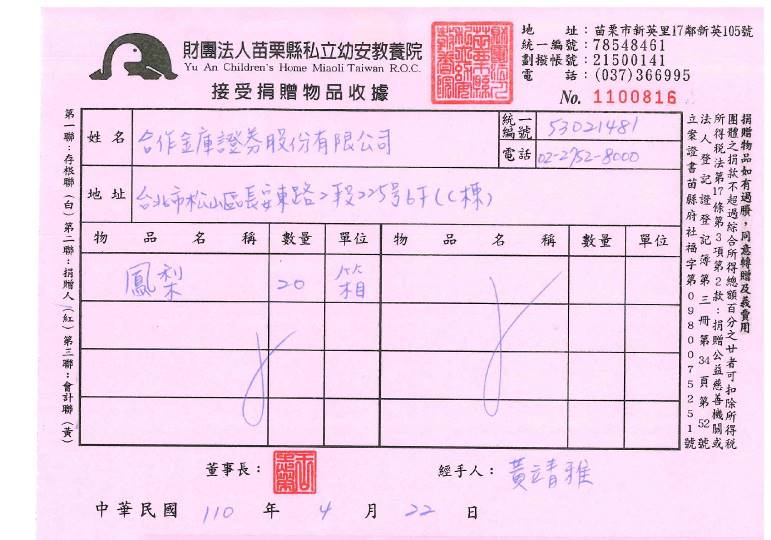 財團法人苗栗縣私立幼安教養院
Yu An Children's Home Miaoli Taiwan R.O.C.
接受捐贈物品收據
地　址：苗栗市新英里17鄰新英105號
統一編號：78548461
劃撥帳號：21500141
電　話：(037)366995
No. 1100816
姓名 合作金庫證券股份有限公司
統一編號 53021481
電話 02-2752-8000
地址 台北市松山區長安東路2段225號6F(C棟)
物品名稱 數量 單位 物品名稱 數量 單位
鳳梨 20 箱
董事長：
經手人：黃靖雅
中華民國 110 年 4 月 22 日
第一聯：存根聯(白) 第二聯：捐贈人(紅) 第三聯：會計聯(黃)
捐贈物品如有過賸，同意轉贈及義賣用
團體之捐款不超過綜合所得總額百分之廿者可扣除所得稅
所得稅法第17條第3項第2款：捐贈公益慈善機關或
法人登記證登記簿第三冊第34頁第52號
立案證書苗縣府社福字第0980075251號